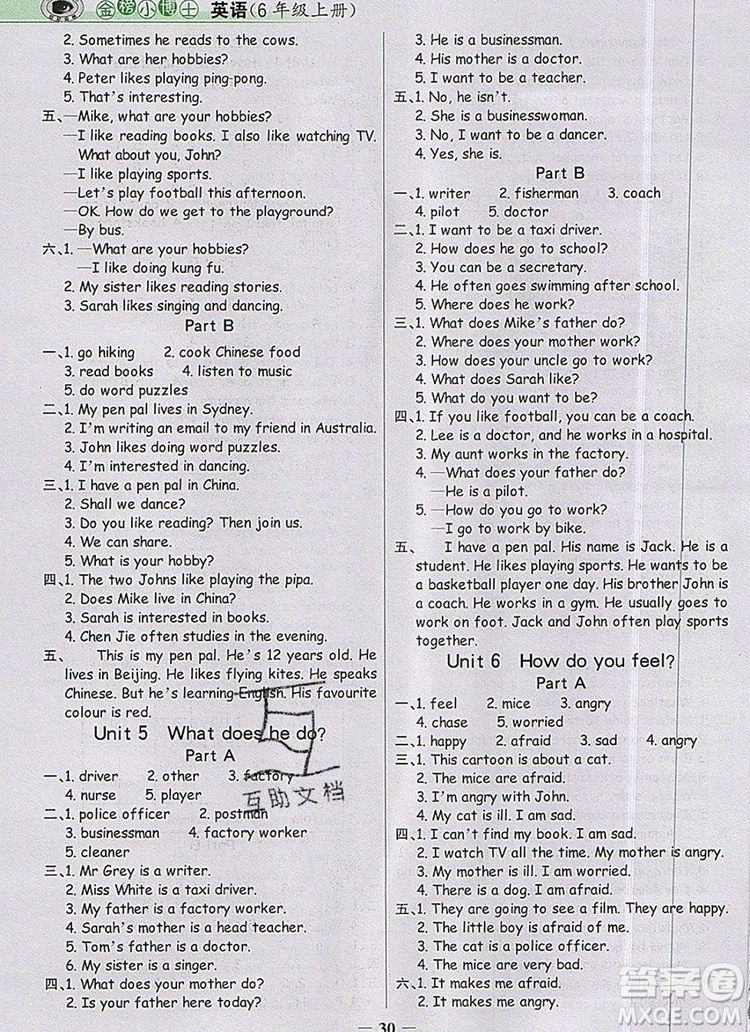 金榜小博士 英语(6年级上册)
2. Sometimes he reads to the cows.
3. What are her hobbies?
4. Peter likes playing ping-pong.
5. That's interesting.
五、—Mike, what are your hobbies?
—I like reading books. I also like watching TV.
What about you, John?
—I like playing sports.
—Let's play football this afternoon.
—OK. How do we get to the playground?
—By bus.
六、1. —What are your hobbies?
—I like doing kung fu.
2. My sister likes reading stories.
3. Sarah likes singing and dancing.
Part B
一、1. go hiking 2. cook Chinese food
3. read books 4. listen to music
5. do word puzzles
二、1. My pen pal lives in Sydney.
2. I'm writing an email to my friend in Australia.
3. John likes doing word puzzles.
4. I'm interested in dancing.
三、1. I have a pen pal in China.
2. Shall we dance?
3. Do you like reading? Then join us.
4. We can share.
5. What is your hobby?
四、1. The two Johns like playing the pipa.
2. Does Mike live in China?
3. Sarah is interested in books.
4. Chen Jie often studies in the evening.
五、 This is my pen pal. He's 12 years old. He
lives in Beijing. He likes flying kites. He speaks
Chinese. But he's learning English. His favourite
colour is red.
Unit 5 What does he do?
Part A
一、1. driver 2. other 3. factory
4. nurse 5. player
二、1. police officer 2. postman
3. businessman 4. factory worker
5. cleaner
三、1. Mr Grey is a writer.
2. Miss White is a taxi driver.
3. My father is a factory worker.
4. Sarah's mother is a head teacher.
5. Tom's father is a doctor.
6. My sister is a nurse.
四、1. What does your mother do?
2. Is your father here today?
3. He is a businessman.
4. His mother is a doctor.
5. I want to be a teacher.
五、1. No, he isn't.
2. She is a businesswoman.
3. No, I want to be a dancer.
4. Yes, she is.
Part B
一、1. writer 2. fisherman 3. coach
4. pilot 5. doctor
二、1. I want to be a taxi driver.
2. How does he go to school?
3. You can be a secretary.
4. He often goes swimming after school.
5. Where does he work?
三、1. What does Mike's father do?
2. Where does your mother work?
3. How does your uncle go to work?
4. What does Sarah like?
5. What do you want to be?
四、1. If you like football, you can be a coach.
2. Lee is a doctor, and he works in a hospital.
3. My aunt works in the factory.
4. —What does your father do?
—He is a pilot.
5. —How do you go to work?
—I go to work by bike.
五、 I have a pen pal. His name is Jack. He is a
student. He likes playing sports. He wants to be
a basketball player one day. His brother John is
a coach. He works in a gym. He usually goes to
work on foot. Jack and John often play sports
together.
Unit 6 How do you feel?
Part A
一、1. feel 2. mice 3. angry
4. chase 5. worried
二、1. happy 2. afraid 3. sad 4. angry
三、1. This cartoon is about a cat.
2. The mice are afraid.
3. I'm angry with John.
4. My cat is ill. I am sad.
四、1. I can't find my book. I am sad.
2. I watch TV all the time. My mother is angry.
3. My mother is ill. I am worried.
4. There is a dog. I am afraid.
五、1. They are going to see a film. They are happy.
2. The little boy is afraid of the dog.
3. The cat is a police officer.
4. The mice are very bad.
六、1. It makes me afraid.
2. It makes me angry.
互助文档
答案圈
MXQE.COM
— 30 —